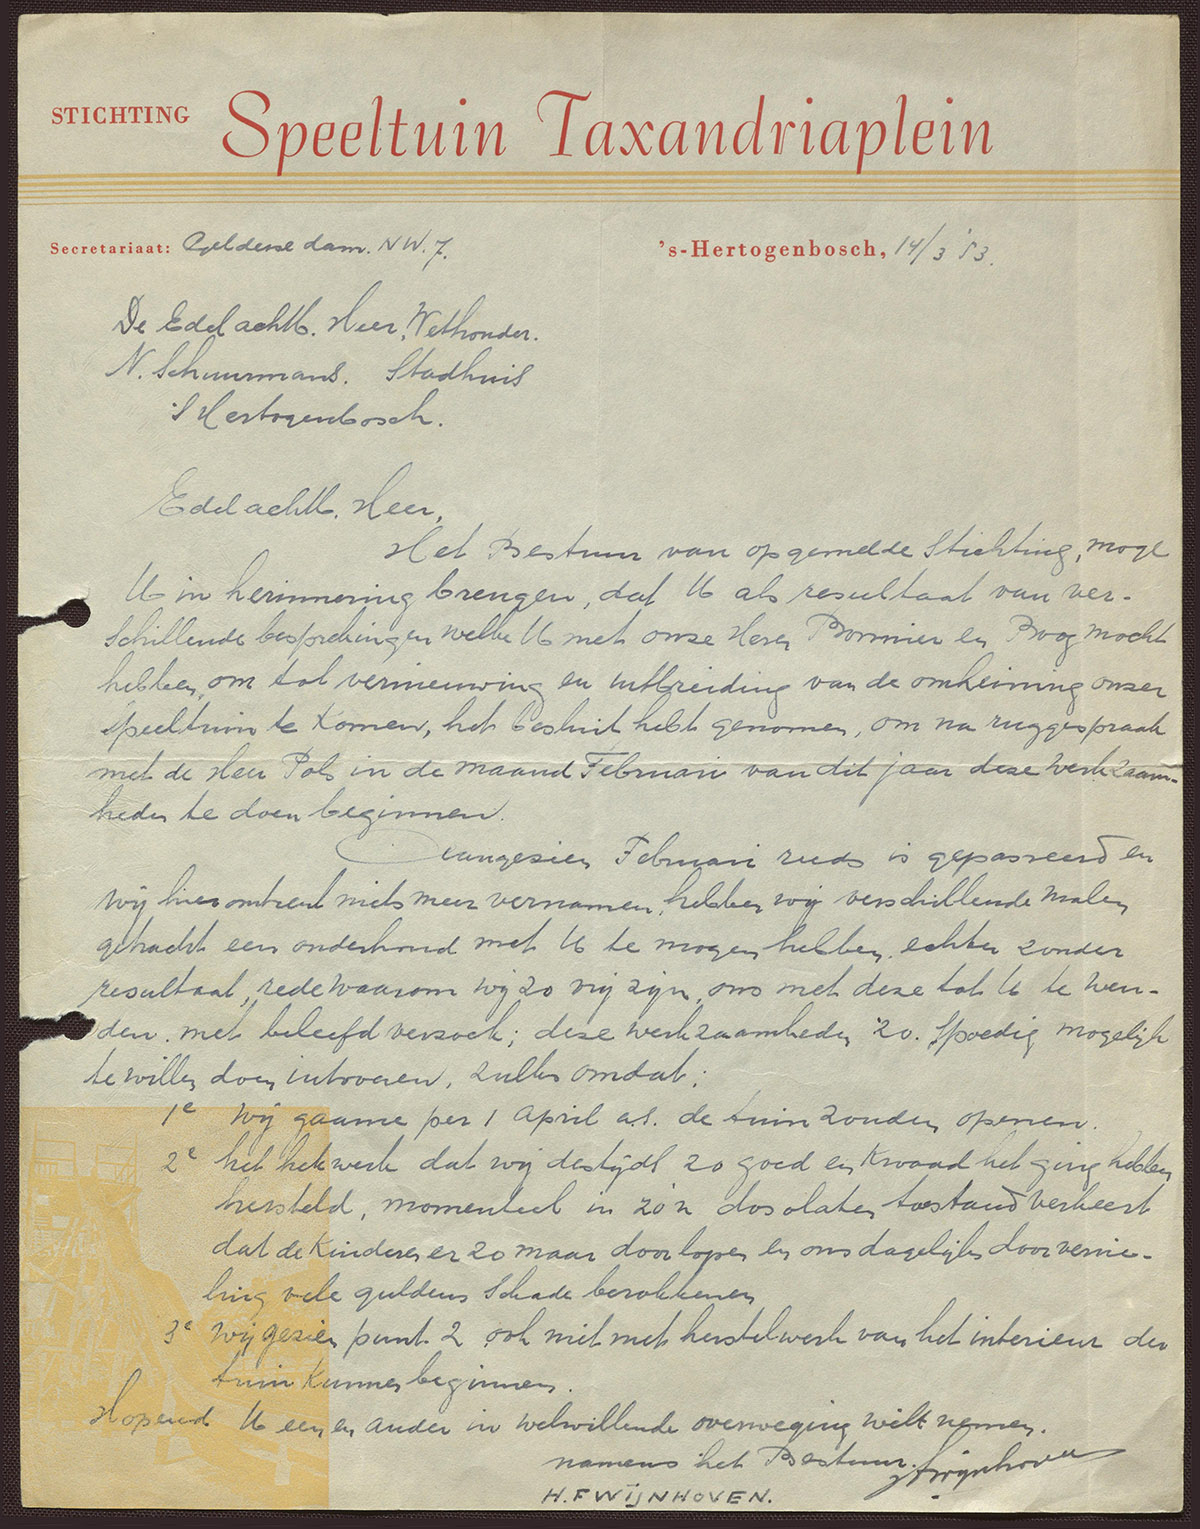 STICHTING Speeltuin Taxandriaplein
Secretariaat: Geldersedam. NW. 7.
's-Hertogenbosch, 14/3 '53.
De Edelachtb. Heer, Wethouder.
N. Schuurmans. Stadhuis
's Hertogenbosch.
Edelachtb. Heer,
Het Bestuur van opgemelde Stichting, moge
U in herinnering brengen, dat U als resultaat van ver-
schillende besprekingen welke U met onze Heren Bornier en Boog mocht
hebben, om tot vernieuwing en uitbreiding van de omheining onzer
speeltuin te komen, het besluit hebt genomen, om na ruggespraak
met de Heer Pols in de maand Februari van dit jaar deze werkzaam-
heden te doen beginnen.
Aangezien Februari reeds is gepasseerd en
wij hieromtrent niets meer vernamen, hebben wij verschillende malen
getracht een onderhoud met U te mogen hebben, echter zonder
resultaat, redewaarom wij zo vrij zijn, ons met deze tot U te wen-
den. met beleefd verzoek; deze werkzaamheden zo. spoedig mogelijk
te willen doen uitvoeren, zulks omdat:
1e wij gaarne per 1 April a.s. de tuin zouden openen.
2e het hekwerk dat wij destijds zo goed en kwaad het ging hebben
hersteld, momenteel in zo'n dosolaten toestand verkeert
dat de kinderen er zo maar doorlopen en ons dagelijks door vernie-
ling vele guldens schade berokkenen
3e wij gezien punt 2 ook niet met herstelwerk van het interieur der
tuin kunnen beginnen.
Hopend U een en ander in welwillende overweging wilt nemen.
namens het Bestuur. HFWijnhoven
H. F WIJNHOVEN.